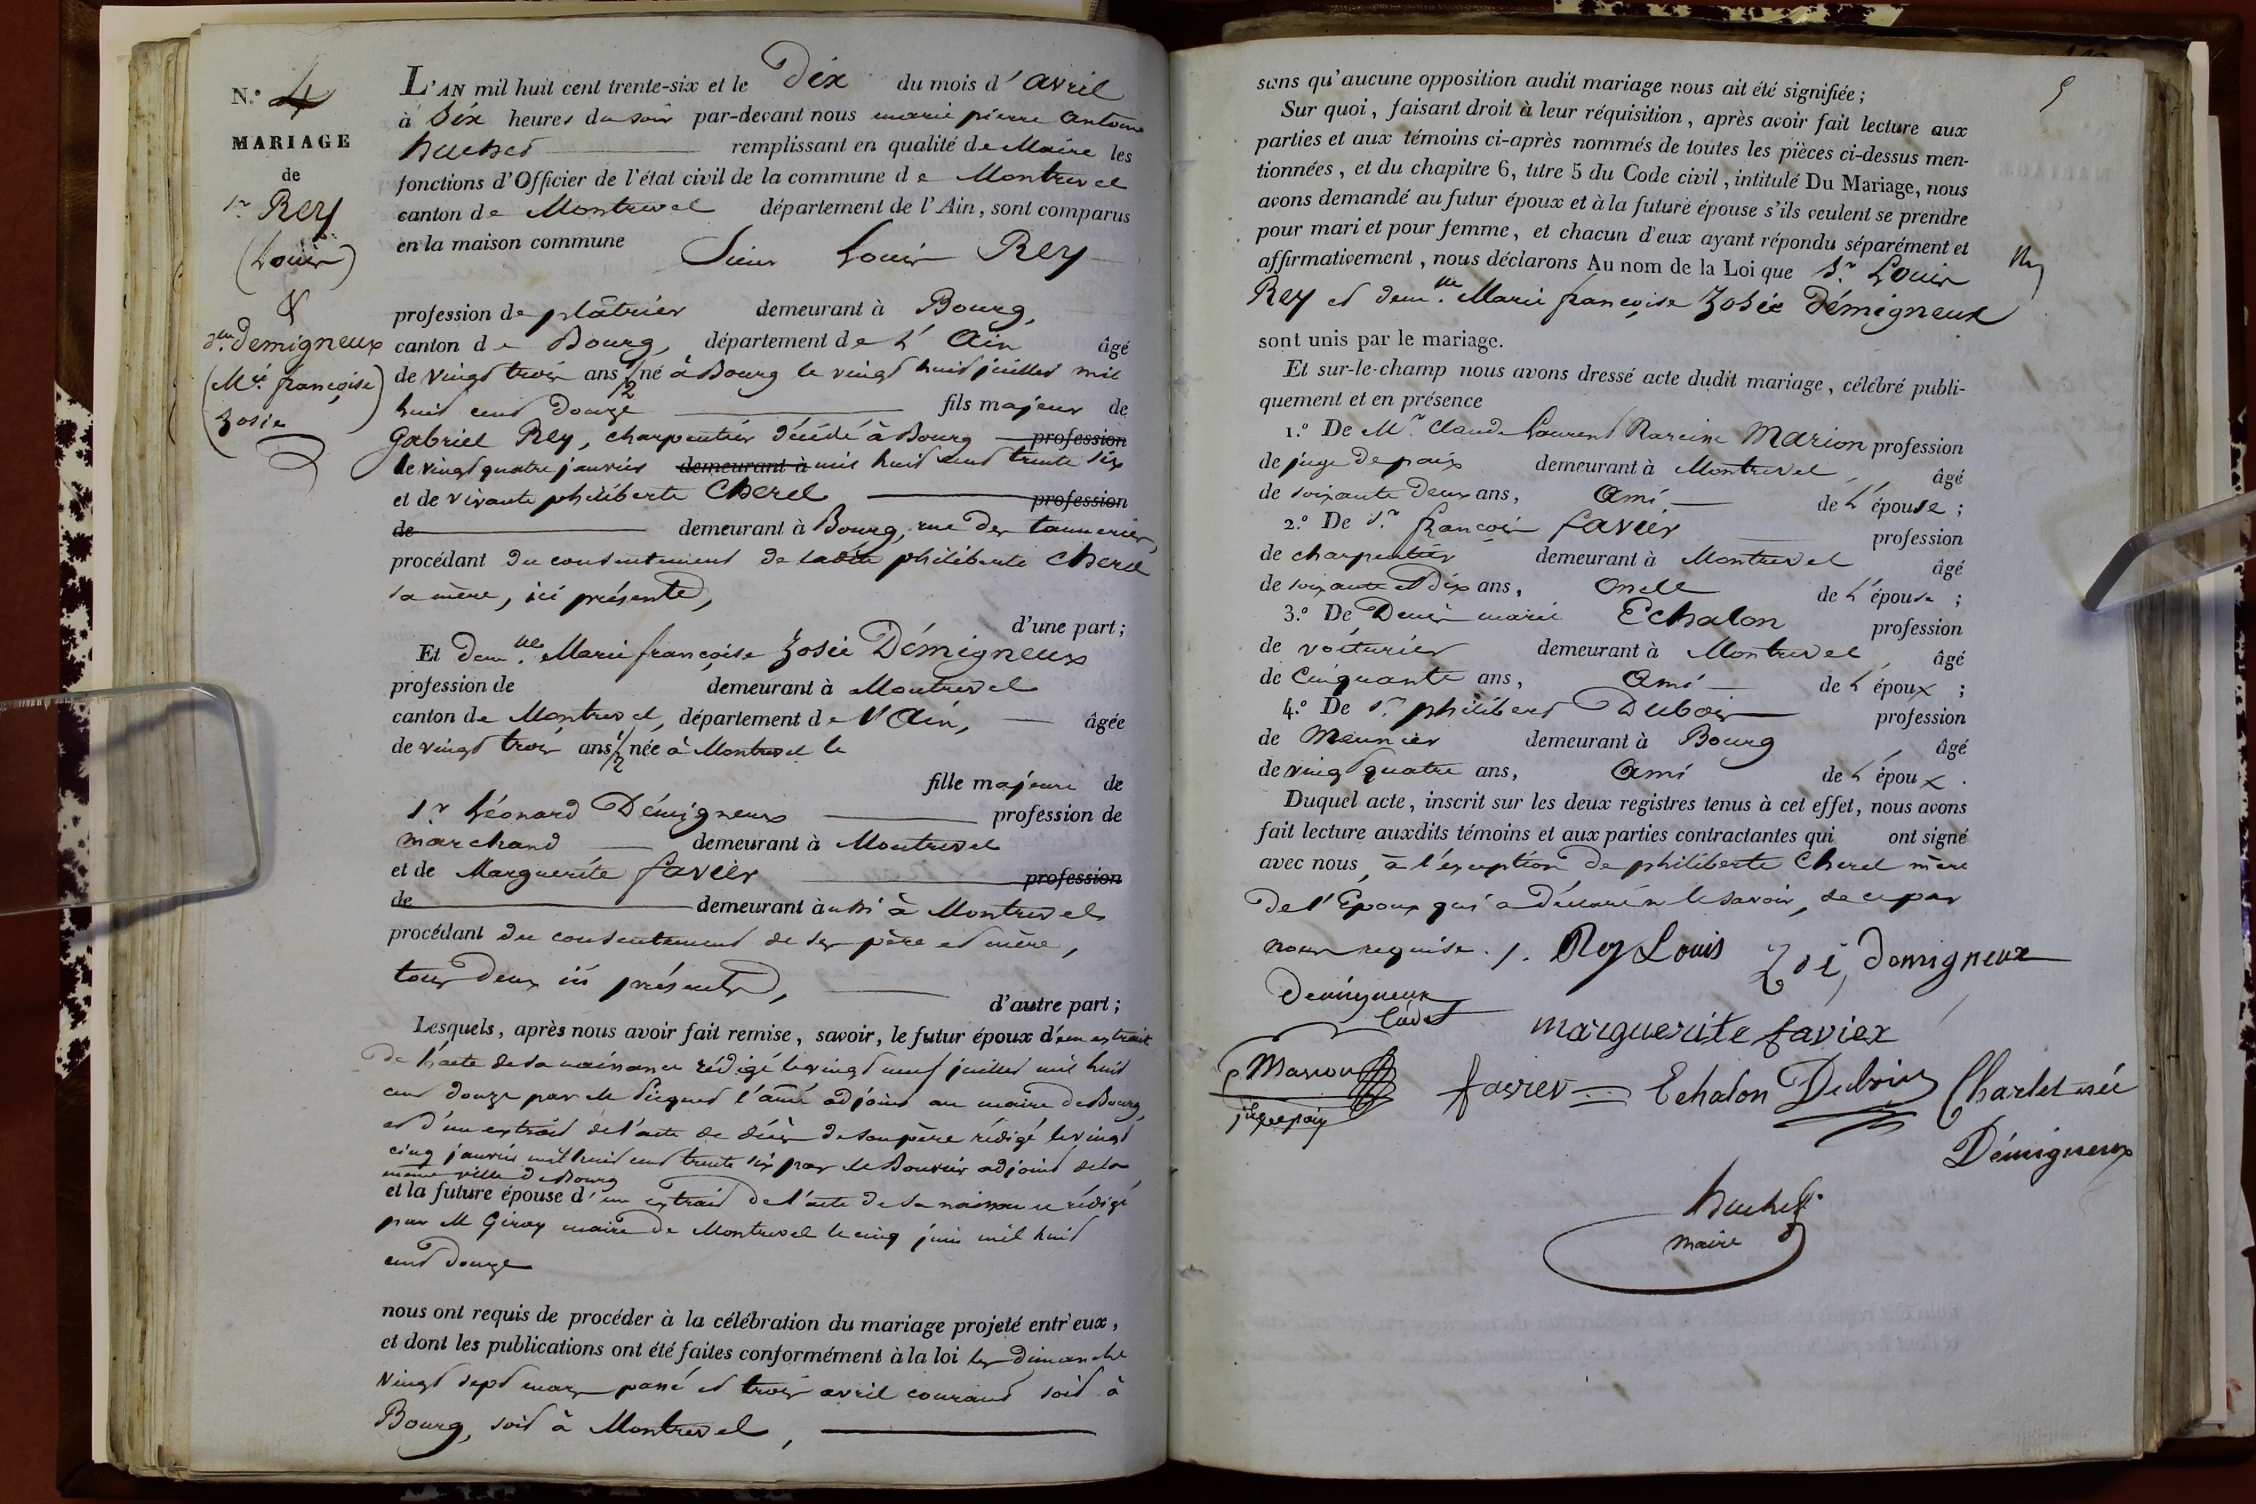 N.º 4
MARIAGE
de
Sr Rey
(Louis)
&
Dlle Demigneux
(Mie françoise
Zosie
L'AN mil huit cent trente-six et le Dix du mois d'avril
à Six heures du soir par-devant nous marie pierre antoine
huchet remplissant en qualité de Maire les
fonctions d'Officier de l'état civil de la commune de Montrevel
canton de Montrevel département de l'Ain, sont comparus
en la maison commune Sieur Louis Rey
profession de plâtrier demeurant à Bourg,
canton de Bourg, département de L'Ain âgé
de vingt trois ans 1/2 né à Bourg le vingt huit juillet mil
huit cent douze fils majeur de
Gabriel Rey, charpentier décédé à Bourg profession
le vingt quatre janvier demeurant à mil huit cent trente six
et de vivante philiberte Cherel profession
de demeurant à Bourg, rue des tanneries,
procédant du consentement de ladite philiberte Cherel
sa mère, ici présente,
d'une part;
Et demlle Marie françoise Zosie Démigneux
profession de demeurant à Montrevel
canton de Montrevel, département de l'Ain, âgée
de vingt trois ans 1/2 née à Montrevel le
fille majeure de
Sr Léonard Démigneux profession de
marchand demeurant à Montrevel
et de Marguerite favier profession
de demeurant aussi à Montrevel
procédant du consentement de ses père et mère,
tous deux ici présents,
d'autre part;
Lesquels, après nous avoir fait remise, savoir, le futur époux d'un extrait
de l'acte de sa naissance rédigé le vingt neuf juillet mil huit
cent douze par M l'ainé adjoint au maire de Bourg,
et d'un extrait de l'acte de décès de son père rédigé le vingt
cinq janvier mil huit cent trente six par M Bouvier adjoint de la
même ville de Bourg
et la future épouse d'un extrait de l'acte de sa naissance rédigé
par M Giroy maire de Montrevel le cinq juin mil huit
cent douze
nous ont requis de procéder à la célébration du mariage projeté entr'eux,
et dont les publications ont été faites conformément à la loi les dimanche
vingt sept mars passé et trois avril courant soit à
Bourg, soit à Montrevel,
5
sans qu'aucune opposition audit mariage nous ait été signifiée;
Sur quoi, faisant droit à leur réquisition, après avoir fait lecture aux
parties et aux témoins ci-après nommés de toutes les pièces ci-dessus men-
tionnées, et du chapitre 6, titre 5 du Code civil, intitulé Du Mariage, nous
avons demandé au futur époux et à la future épouse s'ils veulent se prendre
pour mari et pour femme, et chacun d'eux ayant répondu séparément et
affirmativement, nous déclarons Au nom de la Loi que Sr Louis
Rey et demlle Marie françoise Zosie Démigneux
sont unis par le mariage.
Et sur-le-champ nous avons dressé acte dudit mariage, célébré publi-
quement et en présence
1.º De Mr Claude Laurent Narcisse Marion profession
de juge de paix demeurant à Montrevel, âgé
de soixante deux ans, Ami de L'épouse;
2.º De Sr françois favier profession
de charpentier demeurant à Montrevel âgé
de soixante et dix ans, Oncle de L'épouse;
3.º De Denis marie Echalon profession
de voiturier demeurant à Montrevel, âgé
de Cinquante ans, Ami de L'époux;
4.º De Sr philibert Dubois profession
de Meunier demeurant à Bourg, âgé
de vingt quatre ans, Ami de L'époux.
Duquel acte, inscrit sur les deux registres tenus à cet effet, nous avons
fait lecture auxdits témoins et aux parties contractantes qui ont signé
avec nous, à l'exception de philiberte Cherel mère
de l'Epoux qui a déclaré ne le savoir, de ce par
nous requise. Rey Louis Zoé Demigneux
Demigneux
Cadet
marguerite favier
Marion
juge de paix
favier Echalon Dubois Charlet née
Démigneux
huchet
maire